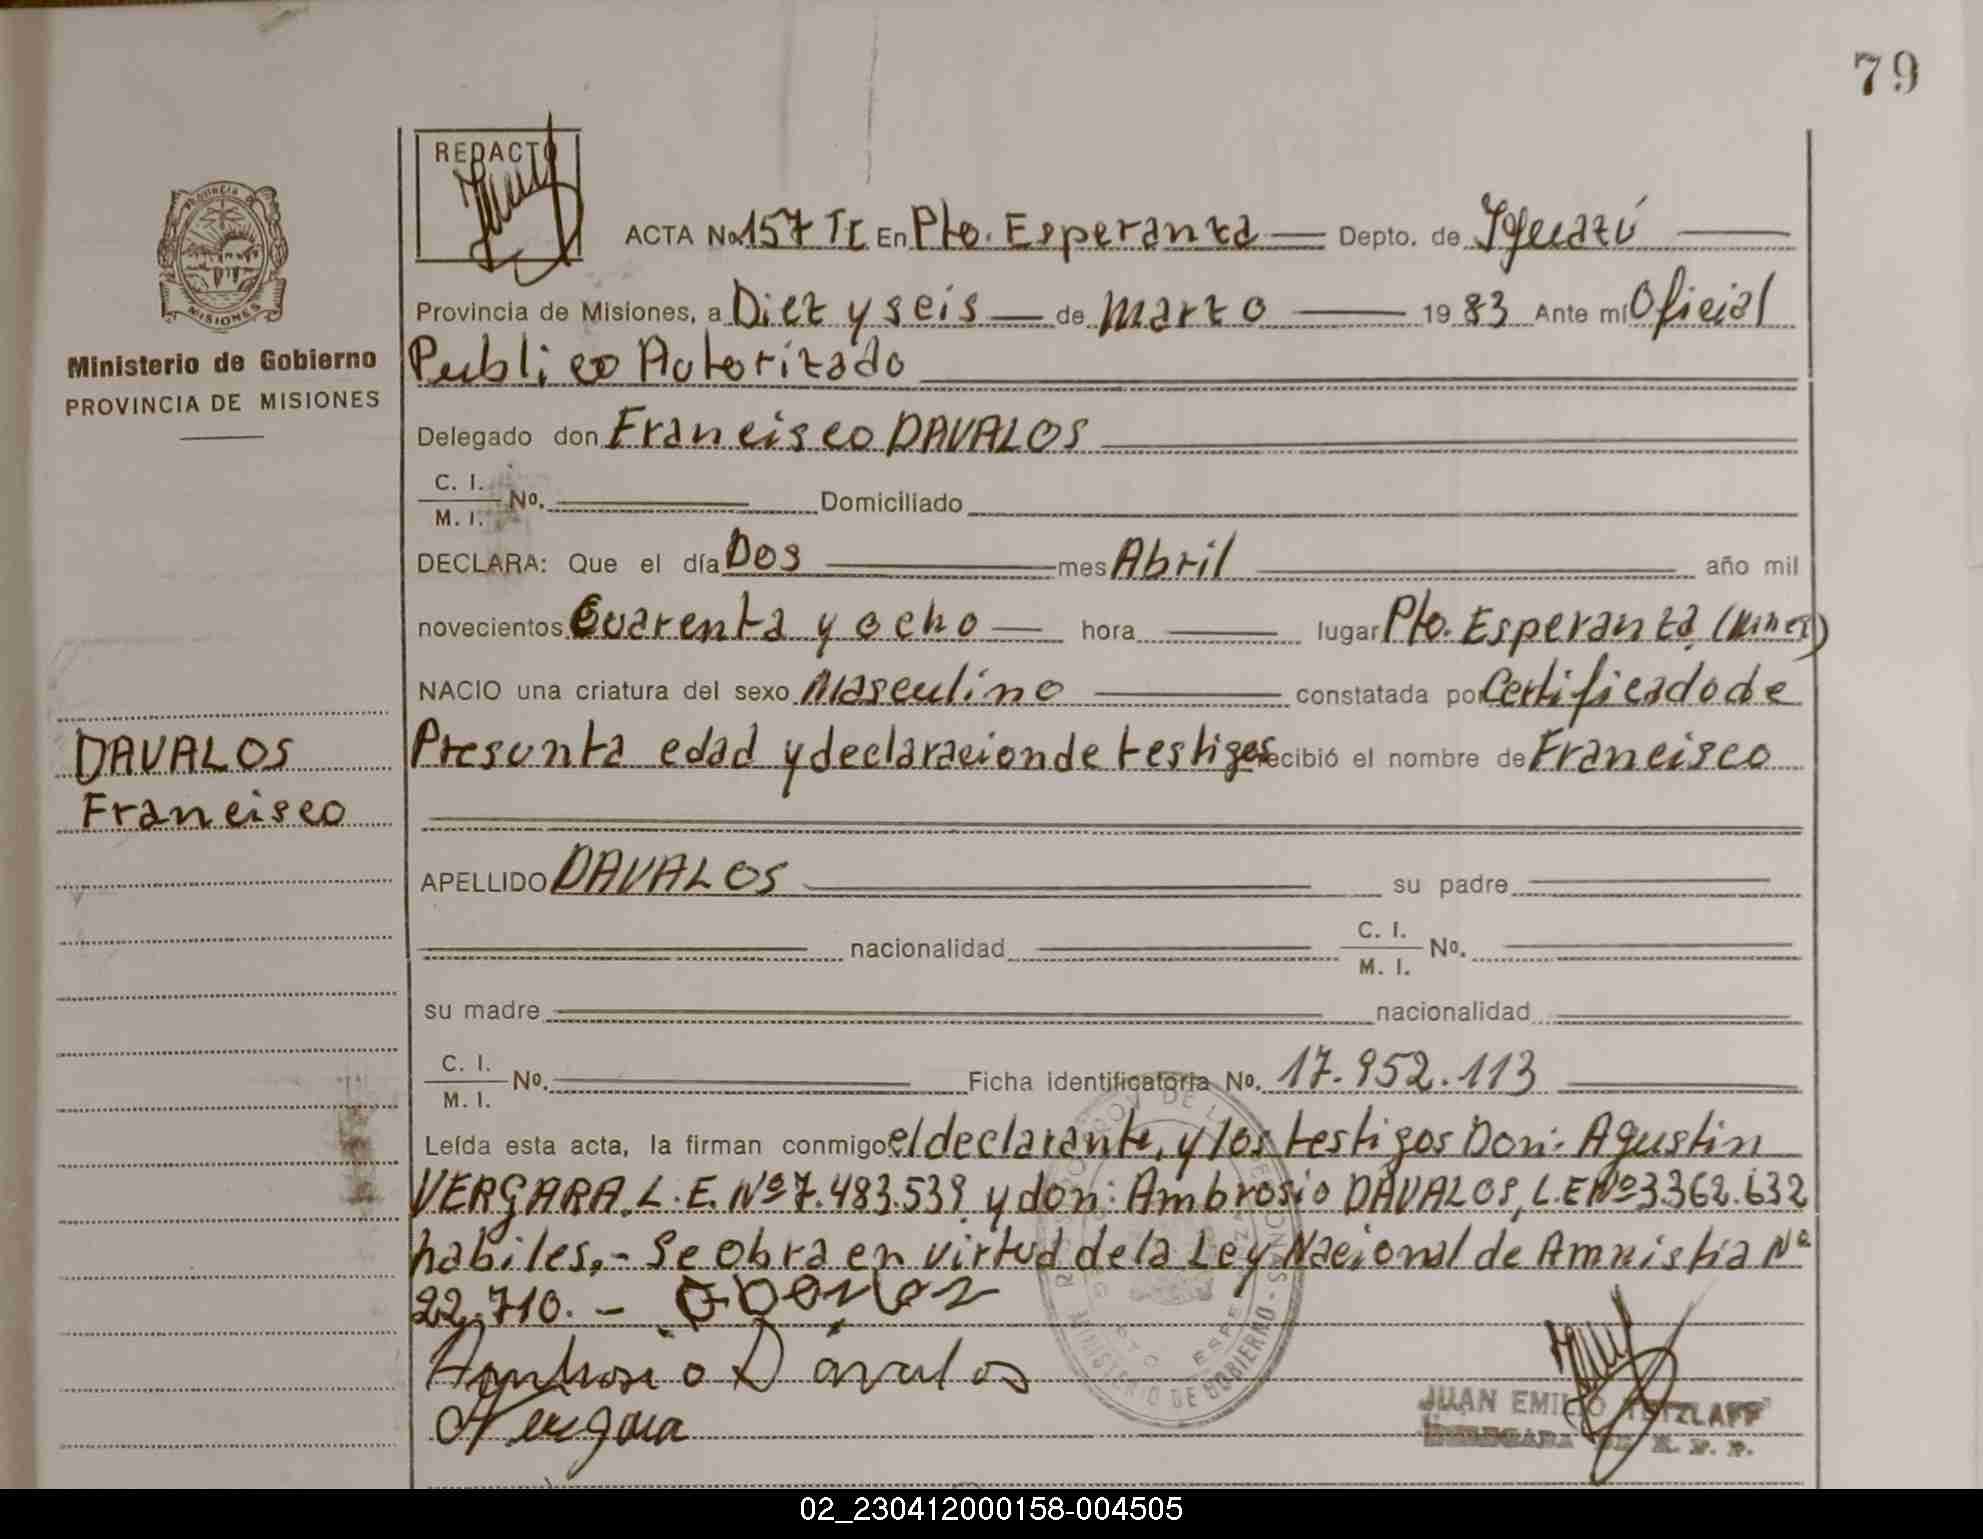 79
REDACTO
ACTA No. 157 TE En Pto. Esperanza Depto. de Iguazú
Provincia de Misiones, a Diez y seis de Marzo 1983 Ante mí Oficial
Publico Autorizado
MISIONES
Ministerio de Gobierno
PROVINCIA DE MISIONES
Delegado don Francisco DAVALOS
C. I.
M. I. No. Domiciliado
DECLARA: Que el día Dos mes Abril año mil
novecientos Cuarenta y ocho hora lugar Pto. Esperanza, (Mnes)
NACIO una criatura del sexo Masculino constatada por Certificado de
Presunta edad y declaracion de testigos recibió el nombre de Francisco
DAVALOS
Francisco
APELLIDO DAVALOS su padre
nacionalidad C. I.
M. I. No.
su madre nacionalidad
C. I.
M. I. No. Ficha identificatoria No. 17.952.113
Leída esta acta, la firman conmigo el declarante, y los testigos Don: Agustin
VERGARA, L. E. Nº 7.483.539 y don: Ambrosio DAVALOS, L.E Nº 3.362.632
habiles.- Se obra en virtud de la Ley Nacional de Amnistia Nº
22.710.-
Ambrosio Davalos
Vergara
MINISTERIO DE GOBIERNO
JUAN EMILIO TETZLAFF
02_230412000158-004505